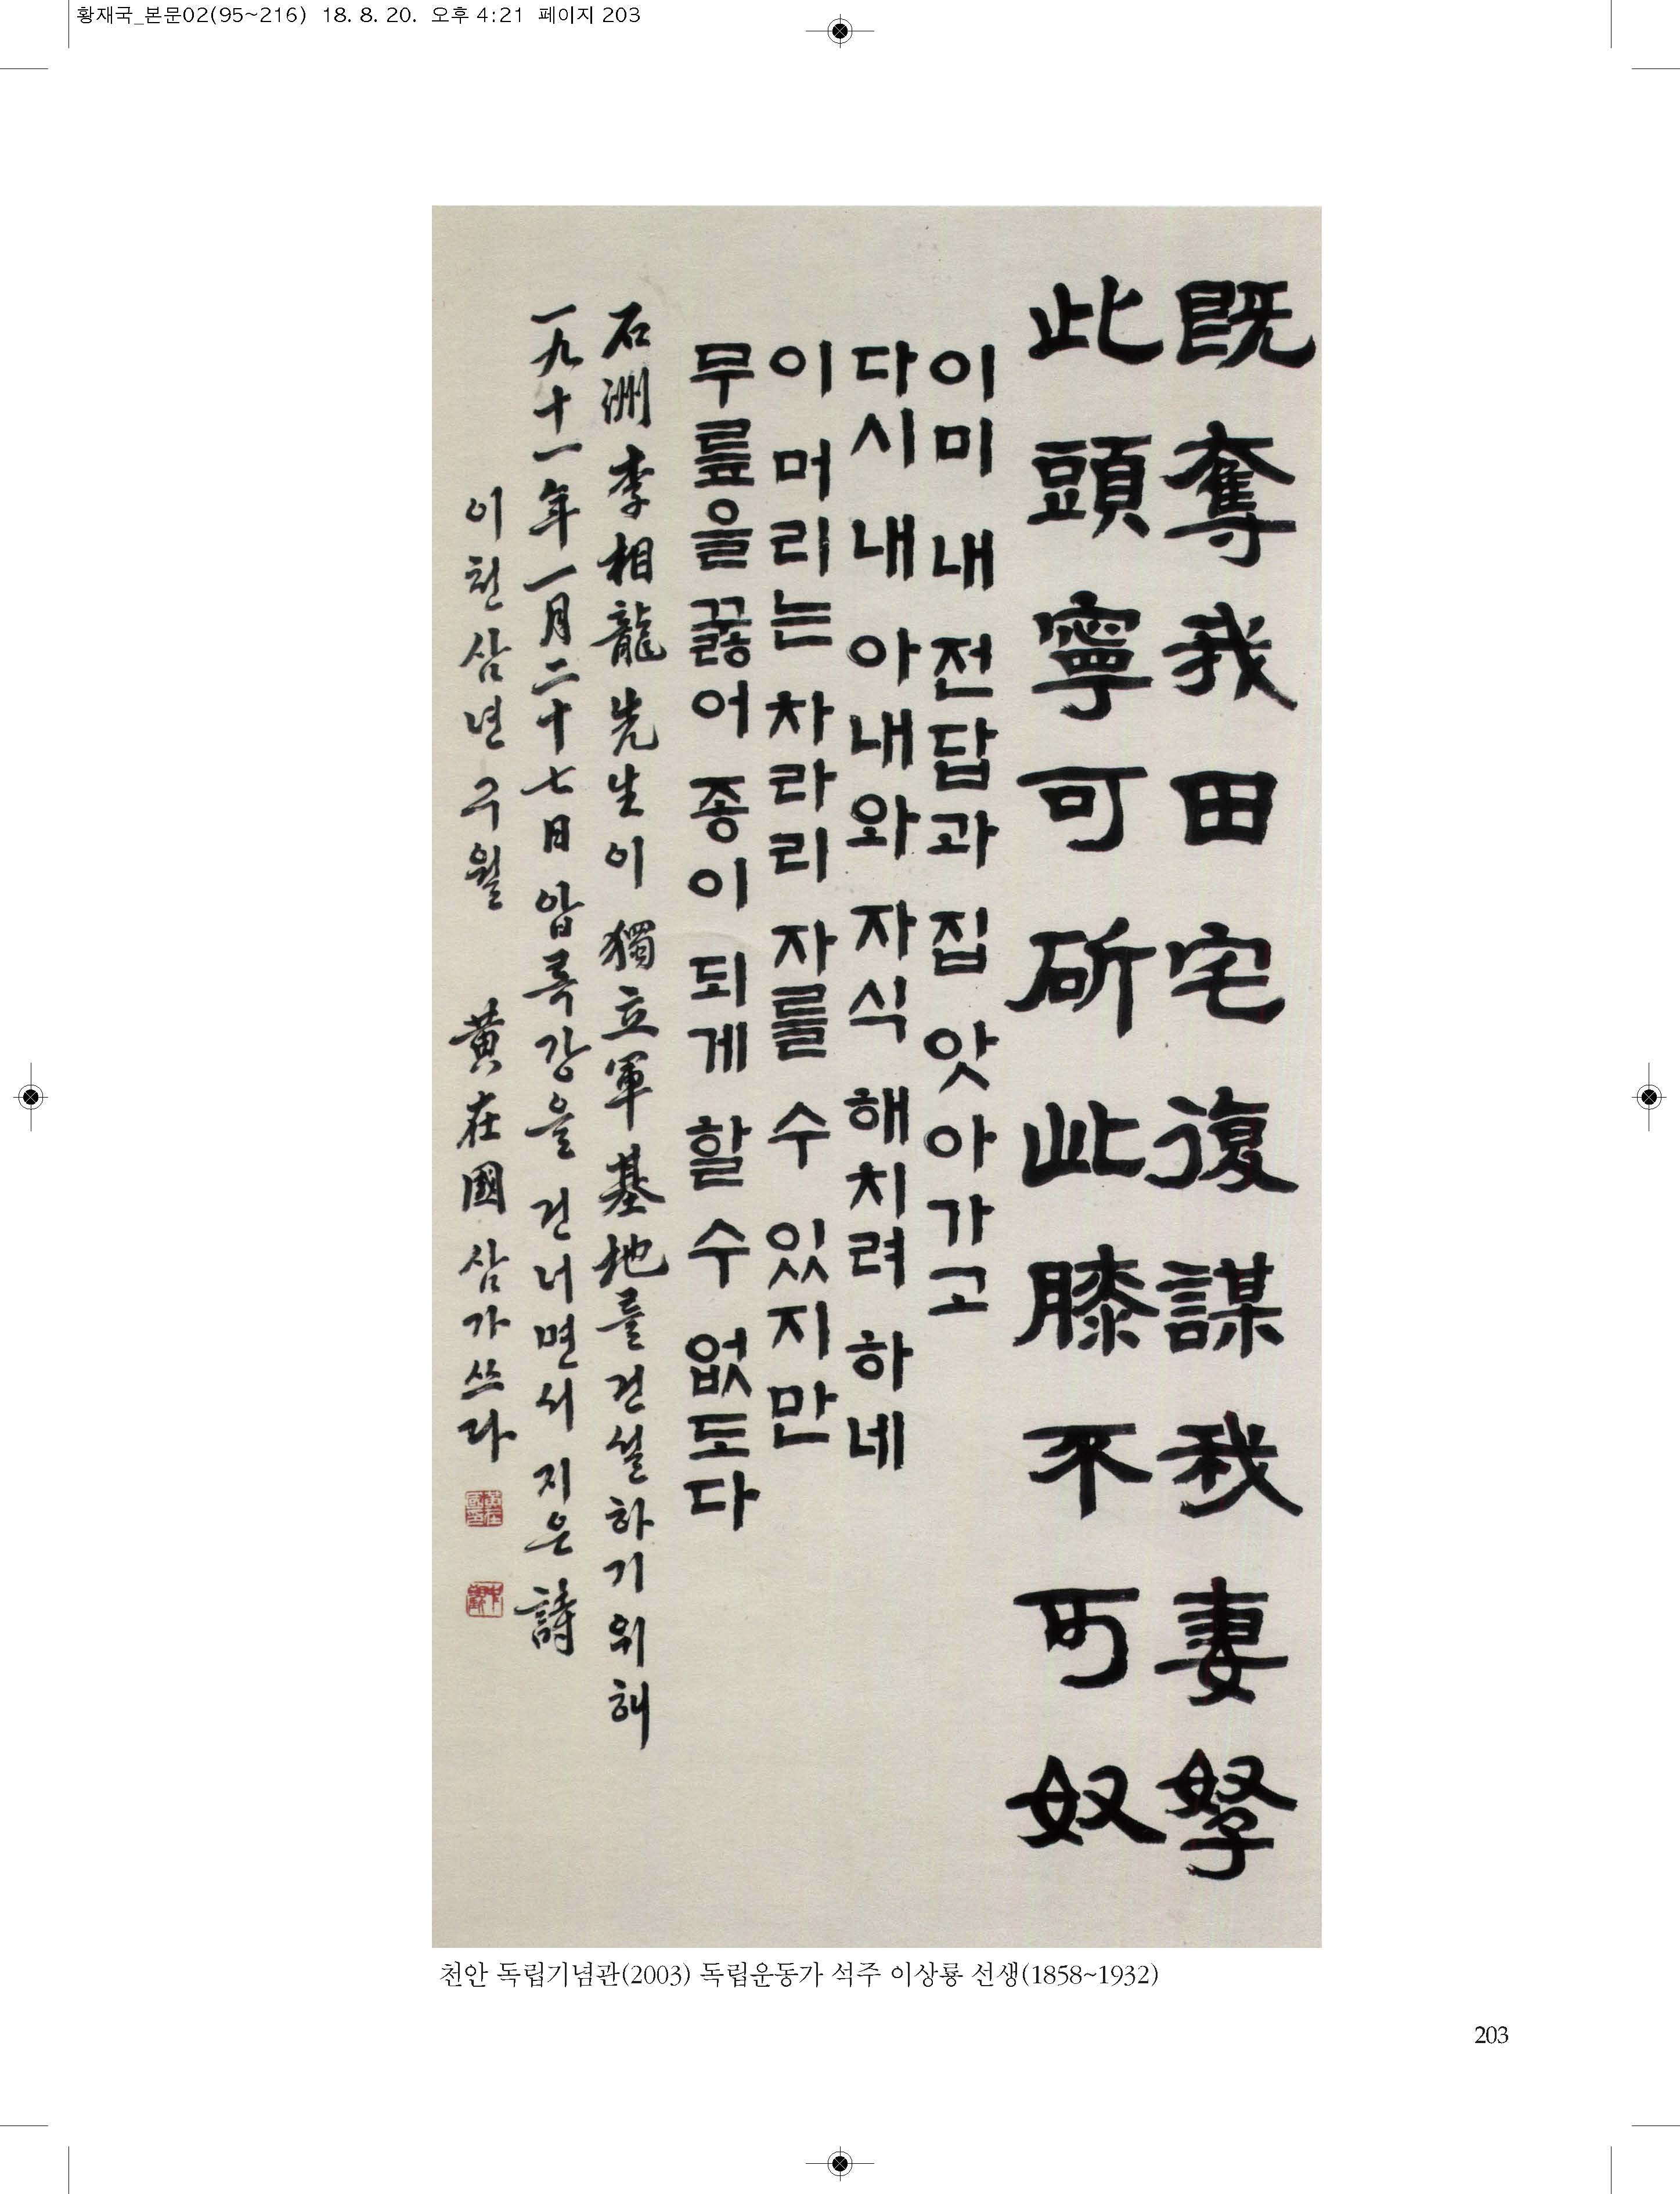 황재국_본문02(95~216) 18. 8. 20. 오후 4:21 페이지 203
既奪我田宅復謀我妻孥
此頭寧可斫此膝不可奴
이미 내 전답과 집 앗아가고
다시 내 아내와 자식 해치려 하네
이 머리는 차라리 자를 수 있지만
무릎을 꿇어 종이 되게 할 수 없도다
石洲 李相龍 先生이 獨立軍 基地를 건설하기 위해
一九十一年 一月 二十七日 압록강을 건너면서 지은 詩
이천삼년 구월 黃在國 삼가 쓰다
천안 독립기념관(2003) 독립운동가 석주 이상룡 선생(1858~1932)
203